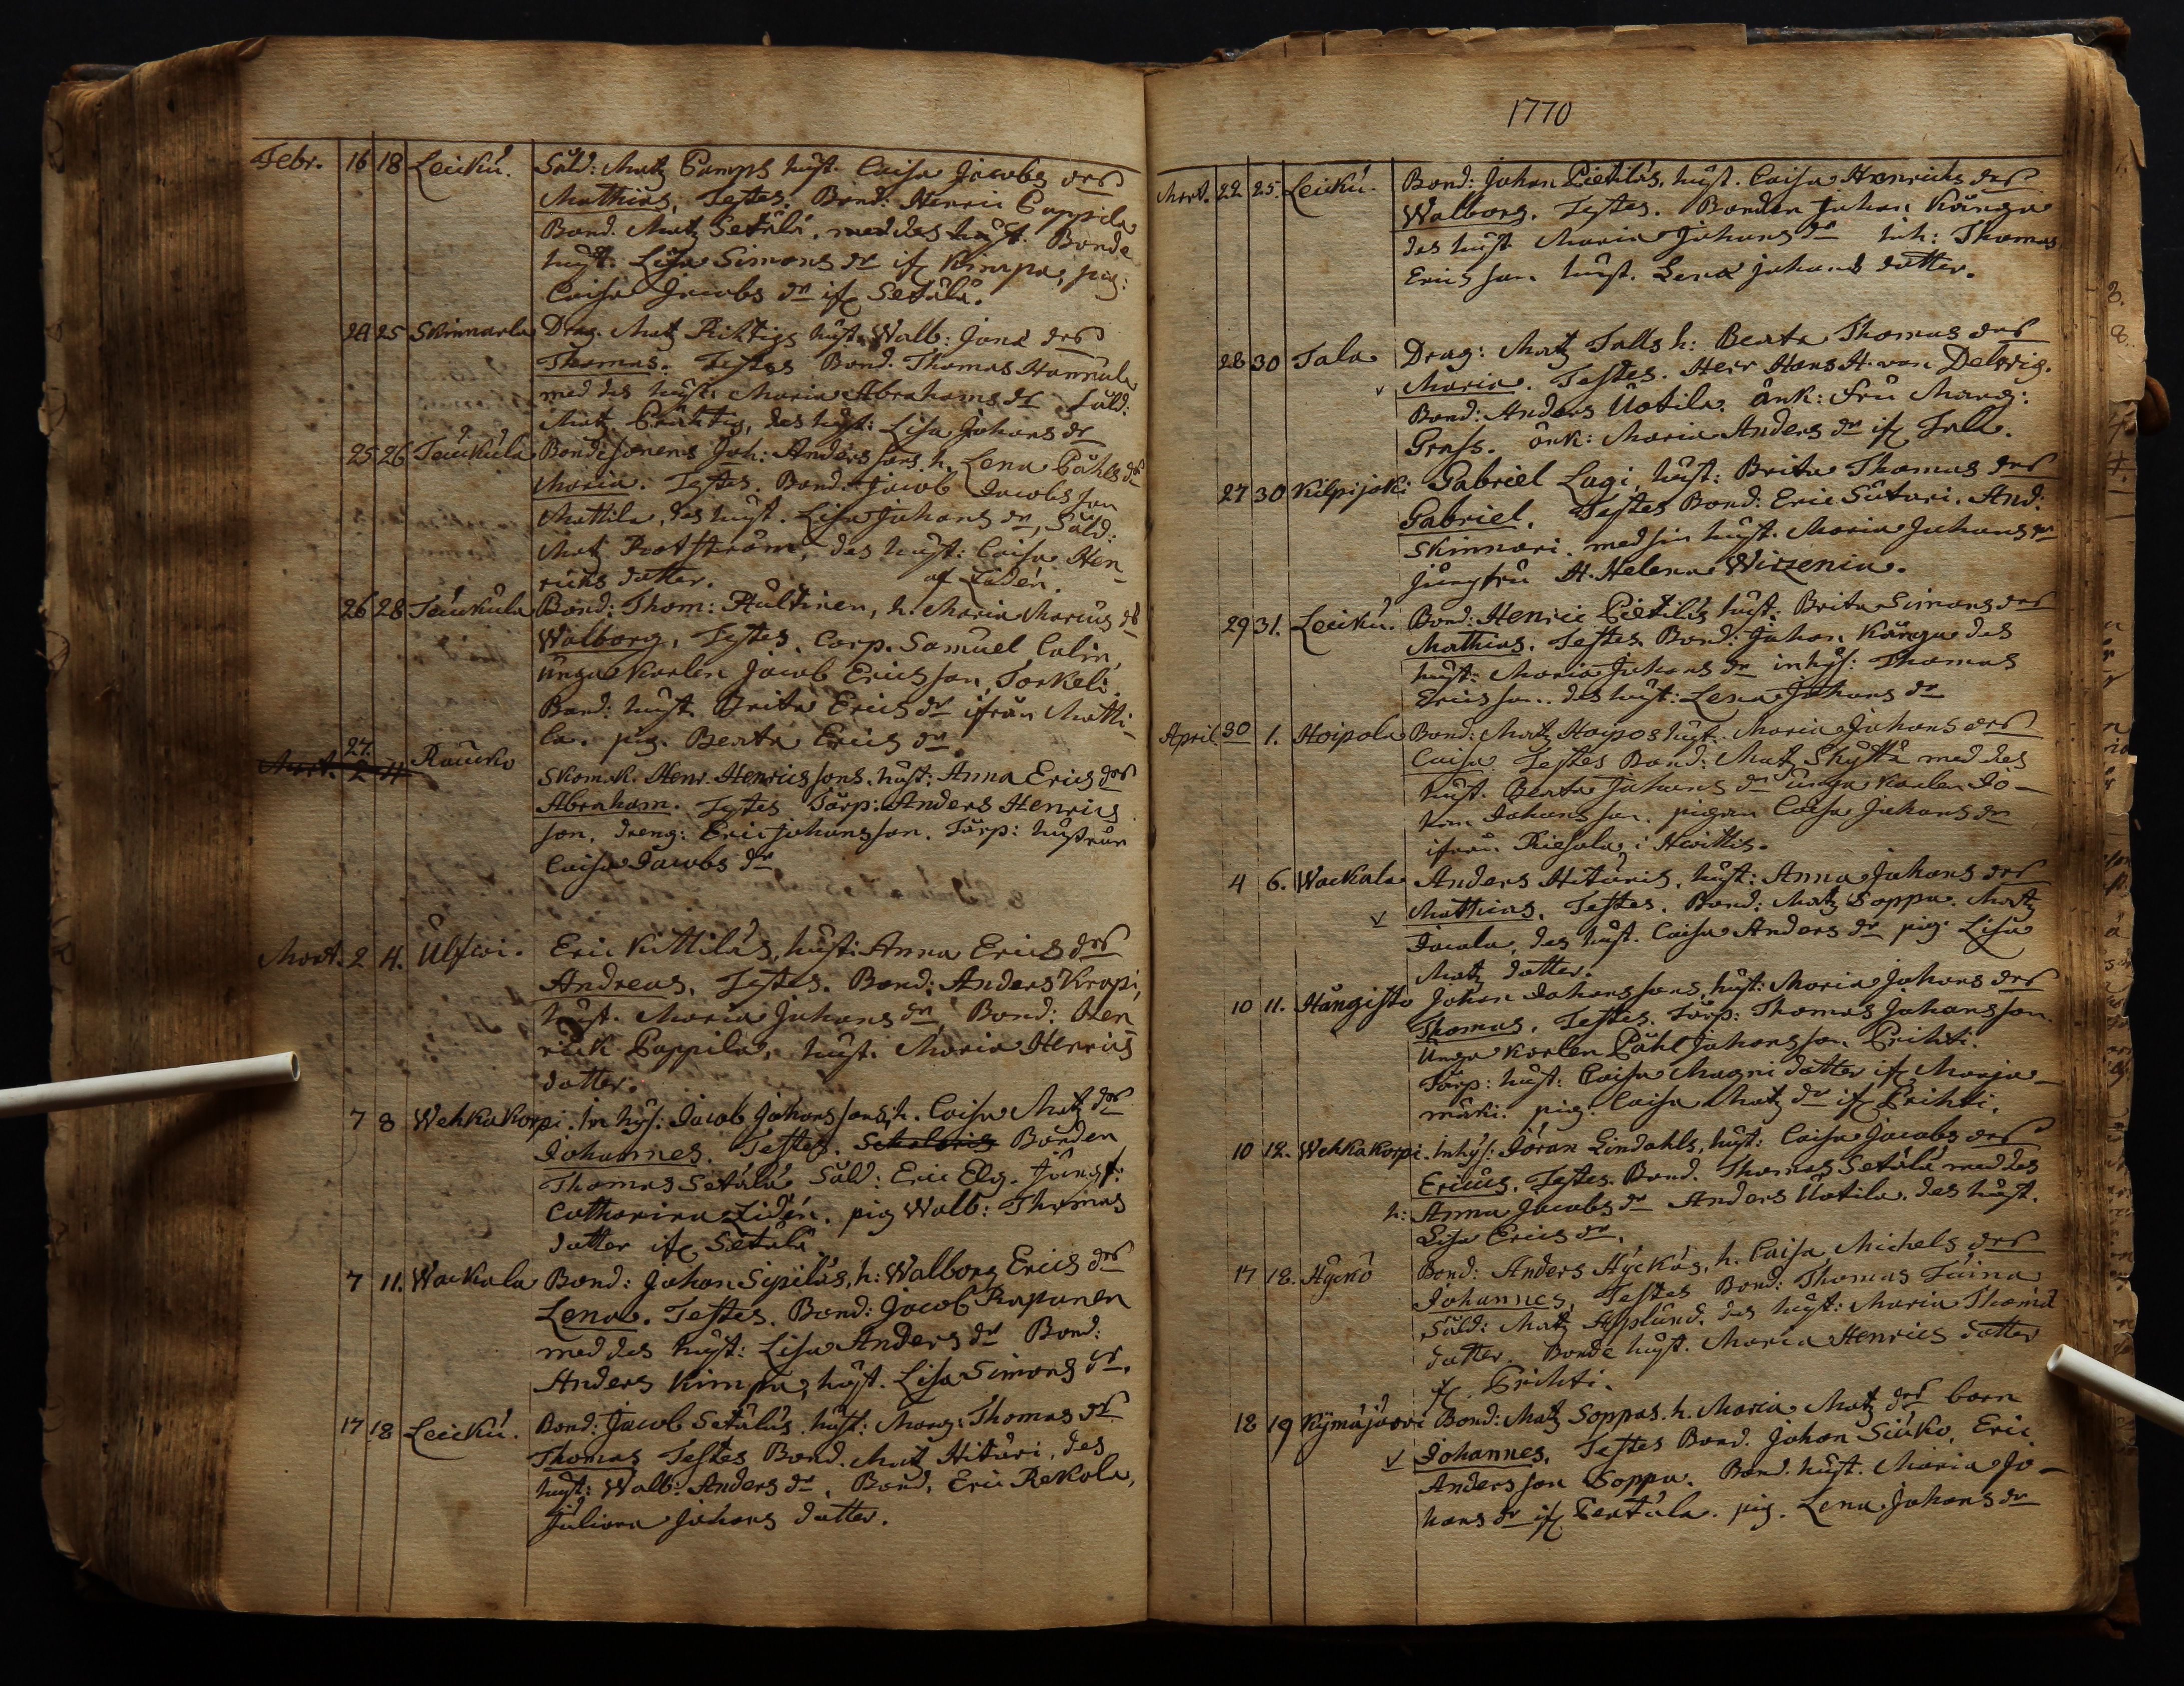 Febr. 16 18 Leickù. Såld: Matz Pamps hust. Caisa Jacobs dr
Mathias, Testes. Bond: Henric Pappila
Bond. Matz Setälä. med des hust. Bonde
hust. Lisa Simons dr if Kimpa, pig:
Caisa Jacobs dr if Setälä.
24 25 Skinnarla Drag. Matz Richtigs hust. Walb: Jona dr
Thomas. Testes Bond. Thomas Hannula
med des hust. Maria Abrahams dr Såld:
Matz Prächtig, des hust: Lisa Johans dr
25 26 Teückùla Bondesonens Joh: Anders sons h. Lena Påhls dr
Maria. Testes. Bond. Jacob Jacobs son
Mattila, des hust. Lisa Johans dr, Såld:
Matz Rootström, des hust: Caisa Hen
ricks dotter.
26 28 Teückùla Bond: Thom: Hultinen, h. Maria Marcus dr
Walborg, Testes. Corp. Samuel Calin,
unga Karlen Jacob Ericsson, Torkeli
Bond: hust. Brita Erics dr ifrån Matti-
la. pig. Beata Erics dr.
27. Raücko
Mart. 2 4
Skom.k. Henr. Henrics sons. hust: Anna Erics dr
Abraham. Testes Torp: Anders Henrics
son, dreng: Eric Johansson. Torp: hustrun
Caisa Jacobs dr
Mart. 2 4. Ülfwi. Eric Kittiläs, hust: Anna Erics dr
Andreas, Testes. Bond: Anders Kropi,
hust. Maria Johans dr, Bond: Hen
rick Pappila, hust. Maria Henrics
dotter.
7 8 Wehkakorpi. Inhys: Jacob Johans sons, h. Caisa Matz dr
Johannes. Testes. Bonden
Thomas Setälä Såld: Eric Elg. Jungf.
Catharina Lidén. pig Walb: Thomas
dotter if Setälä
7 11. Wackala Bond: Johan Sipiläs, h: Walborg Erics dr
Lena. Testes. Bond: Jacob Rapanen
med des hust: Lisa Anders dr Bond:
Anders Kimpa, hust. Lisa Simons dr.
17 18 Leickù. Bond: Jacob Setäläs. hust: Marg: Thomas dr
Thomas Testes Bond. Matz Hituri, des
hust: Walb: Anders dr. Bond. Eric Rekola,
Juliana Johans dotter.
1770
Mart. 22 25. Leickù. Bond: Johan Pietiläs, hust. Caisa Henricks dr
Walborg. Testes. Bonden Johan Kånga
des hust Maria Johans dr Inh: Thomas
Erics son hust. Lena Johans dotter.
28 30 Tala Drag: Matz Talls h: Beata Thomas dr
Maria. Testes. Herr Hans H. von Delwig.
Bond: Anders Uotila. änk: Fru Marg:
Grass. änk: Maria Anders dr if Tala.
27 30 Kilpijoki Gabriel Lagi, hust: Brita Thomas dr
Gabriel. Testes Bond: Eric Sutari. And:
Skinnari. med sin hust. Maria Johans dr
Jungfru H. Helena Wirzenia.
29 31. Leickù. Bond: Henric Pietiläs hust: Brita Simons dr
Mathias. Testes. Bond: Johan Kånga des
hust: Maria Johans dr inhys: Thomas
Ericsson. des hust: Lena Johans dr
April 30 1. Hoipola Bond: Matz Hoipos hust. Maria Johans dr
Caisa. Testes Bond: Matz Skyttä med des
hust. Beata Johans dr unga karlen Jo-
han Johansson. pigan Caisa Johans dr
ifrån Riesola i Hvittis.
4 6. Wackala Anders Hituris, hust: Anna Johans dr
Matthias, Testes. Bond: Matz Soppa. Matz
Jacala, des hust. Caisa Anders dr pig: Lisa
Matz dotter.
10 11. Hångisto Johan Johans sons, hust: Maria Johans dr
Thomas, Testes. Torp: Thomas Johansson.
Unga Karlen Påhl Johansson Prihti.
Torp: hust: Caisa Magni dotter if Marja-
mäki. pig: Caisa Matz dr if Prihti.
10 12. Wehkakorpi. Inhys: Jöran Lindahls, hust: Caisa Jacobs dr
Ericus, Testes. Bond. Thomas Setälä med des
h: Anna Jacobs dr Anders Uotila. des hust.
Lisa Erics dr.
17 18. Hÿckö Bond: Anders Hÿckös, h. Caisa Michels dr
Johannes, Testes Bond: Thomas Tuina
Såld: Matz Applund. des hust: Maria Thoma
dotter. Bonde hust. Maria Henrics dotter
if Prihti.
18 19 Kÿmäjärvi Bond: Matz Soppas. h. Maria Matz dr barn
Johannes, Testes Bond. Johan Siuko, Eric
Andersson Soppa. Bond. hust. Maria Jo-
hans dr if Pentala. pig. Lena Johans dr